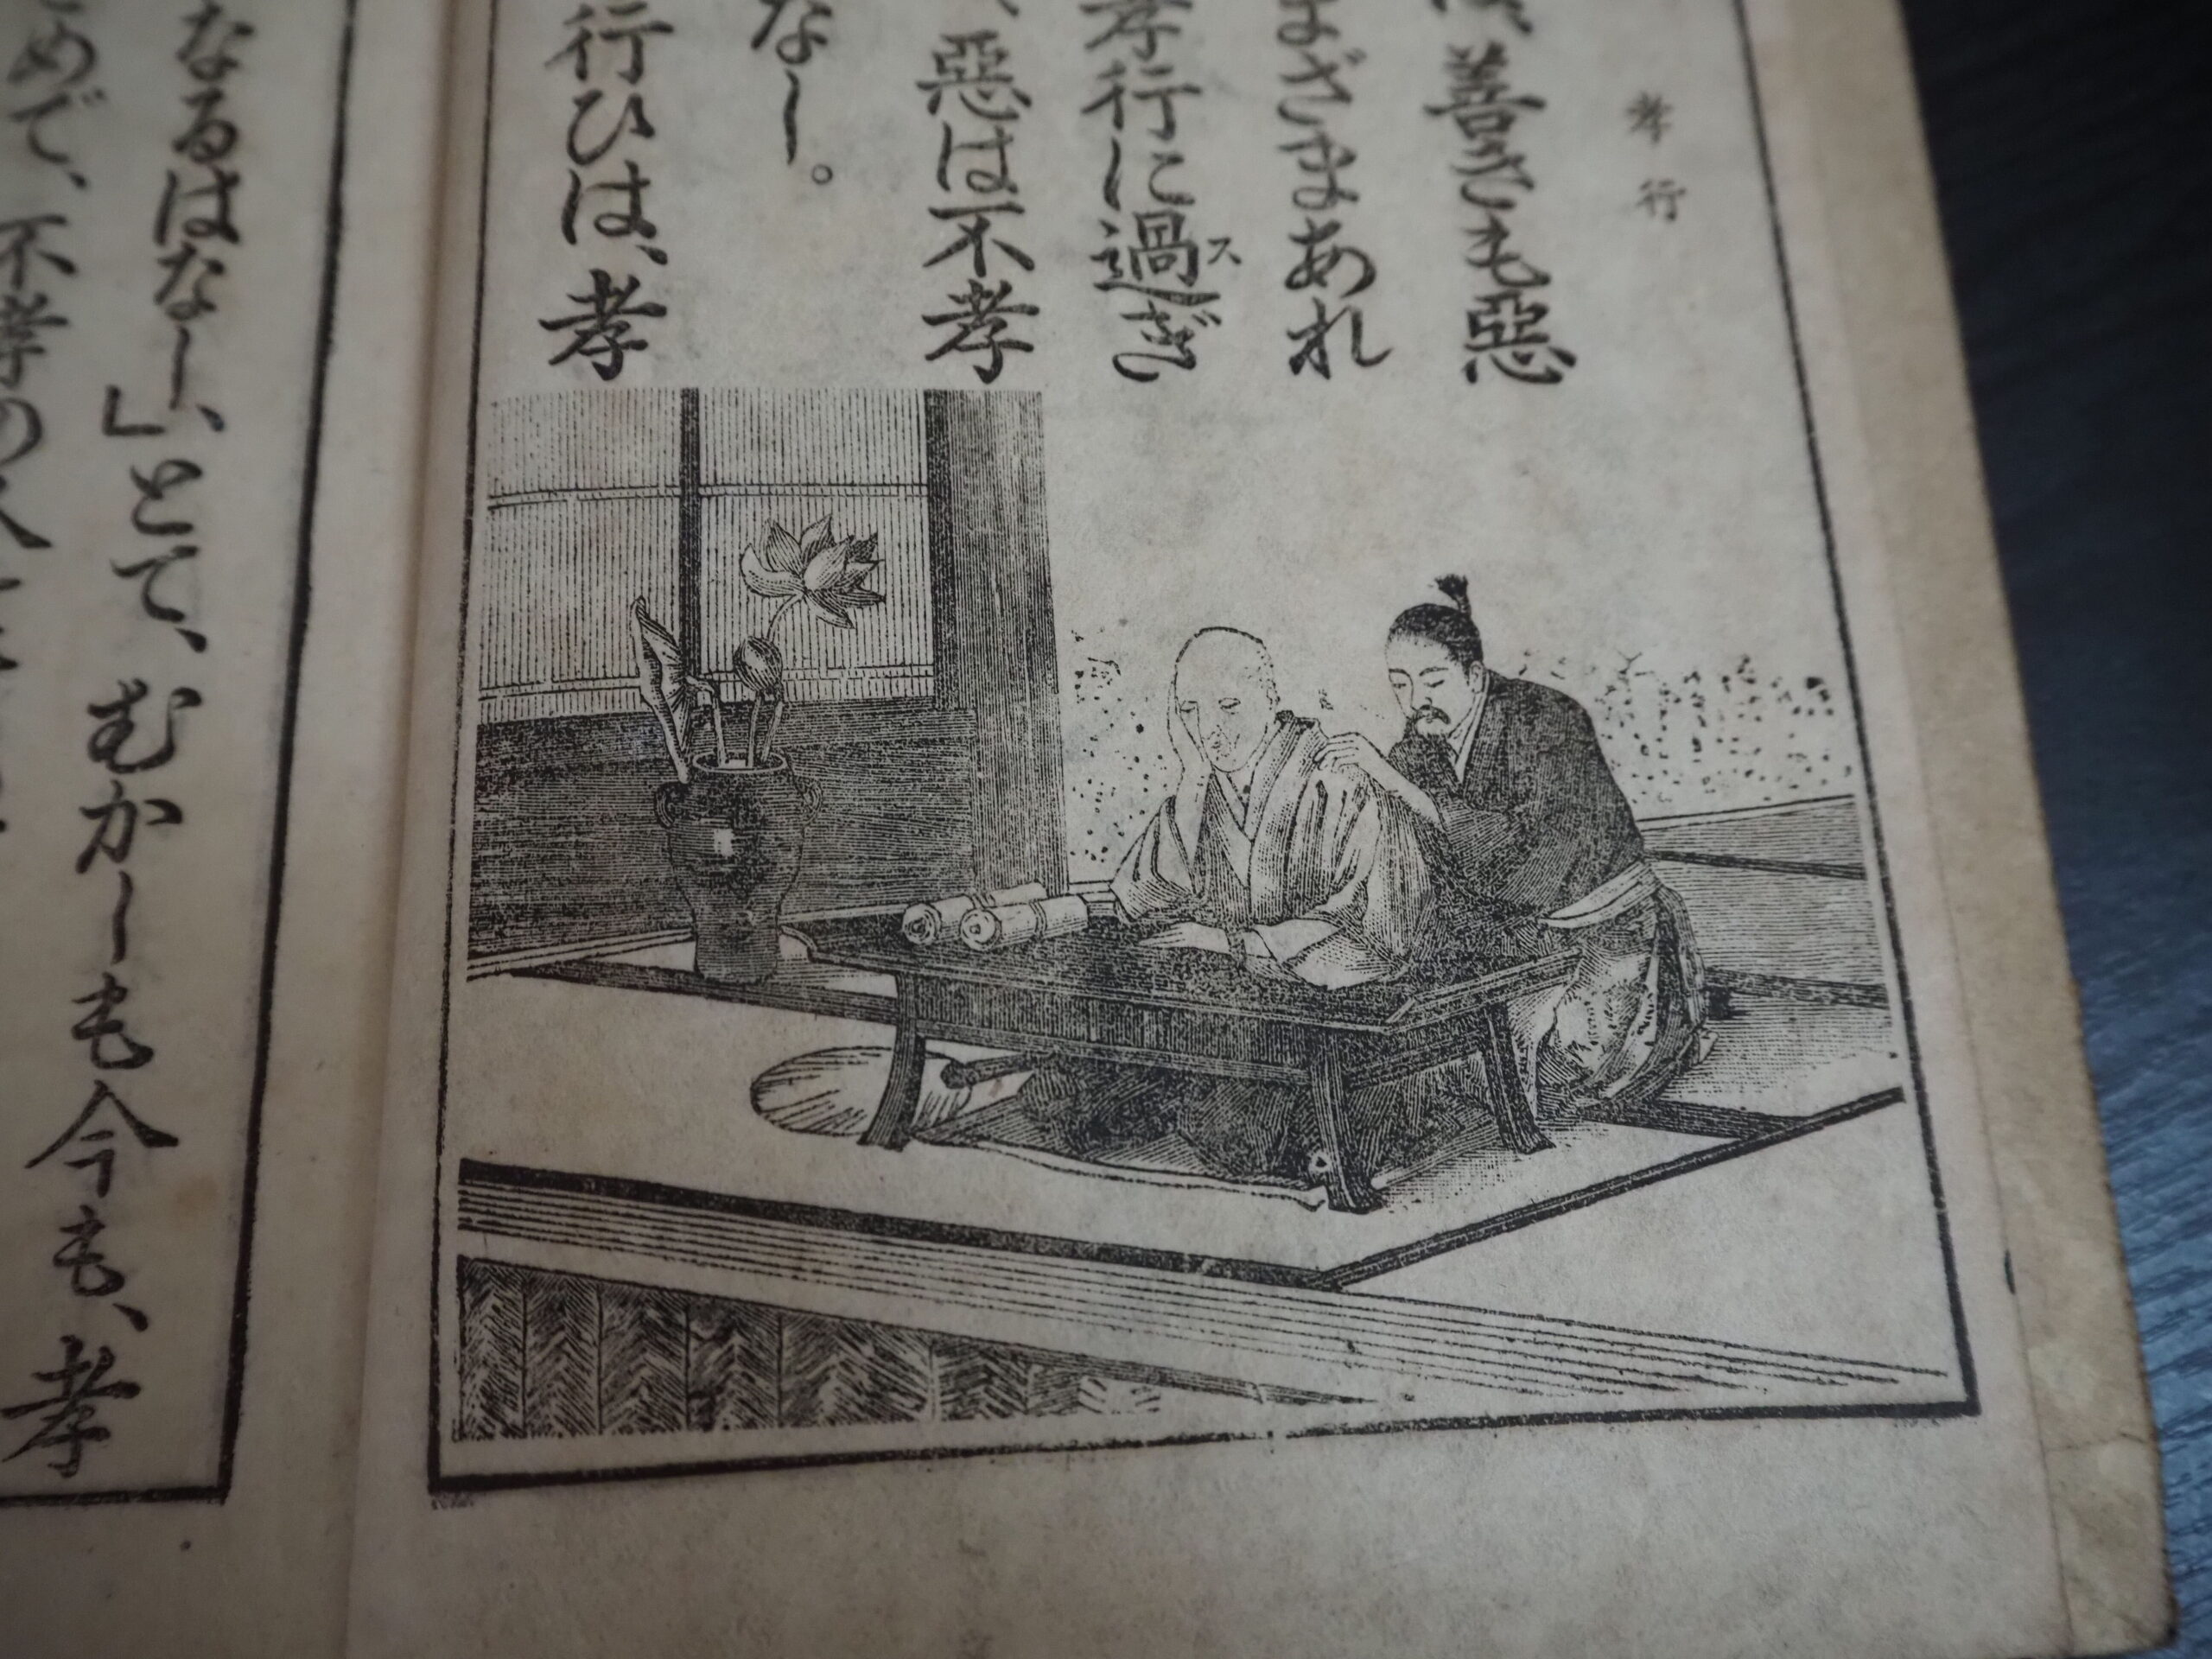 孝行
善きも惡
まざまあれ
孝行に過ぎ
ス
、惡は不孝
なし。
行ひは、孝
なるはなし、」とて、むかしも今も、孝
めで、不孝の人